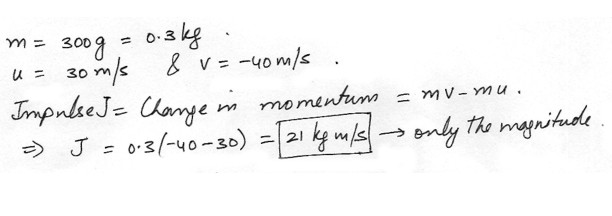 m = 300g = 0.3 kg .
u = 30 m/s & v = -40 m/s .
Impulse J = Change in momentum = mv - mu .
⇒ J = 0.3(-40-30) = 21 kg m/s → only the magnitude .